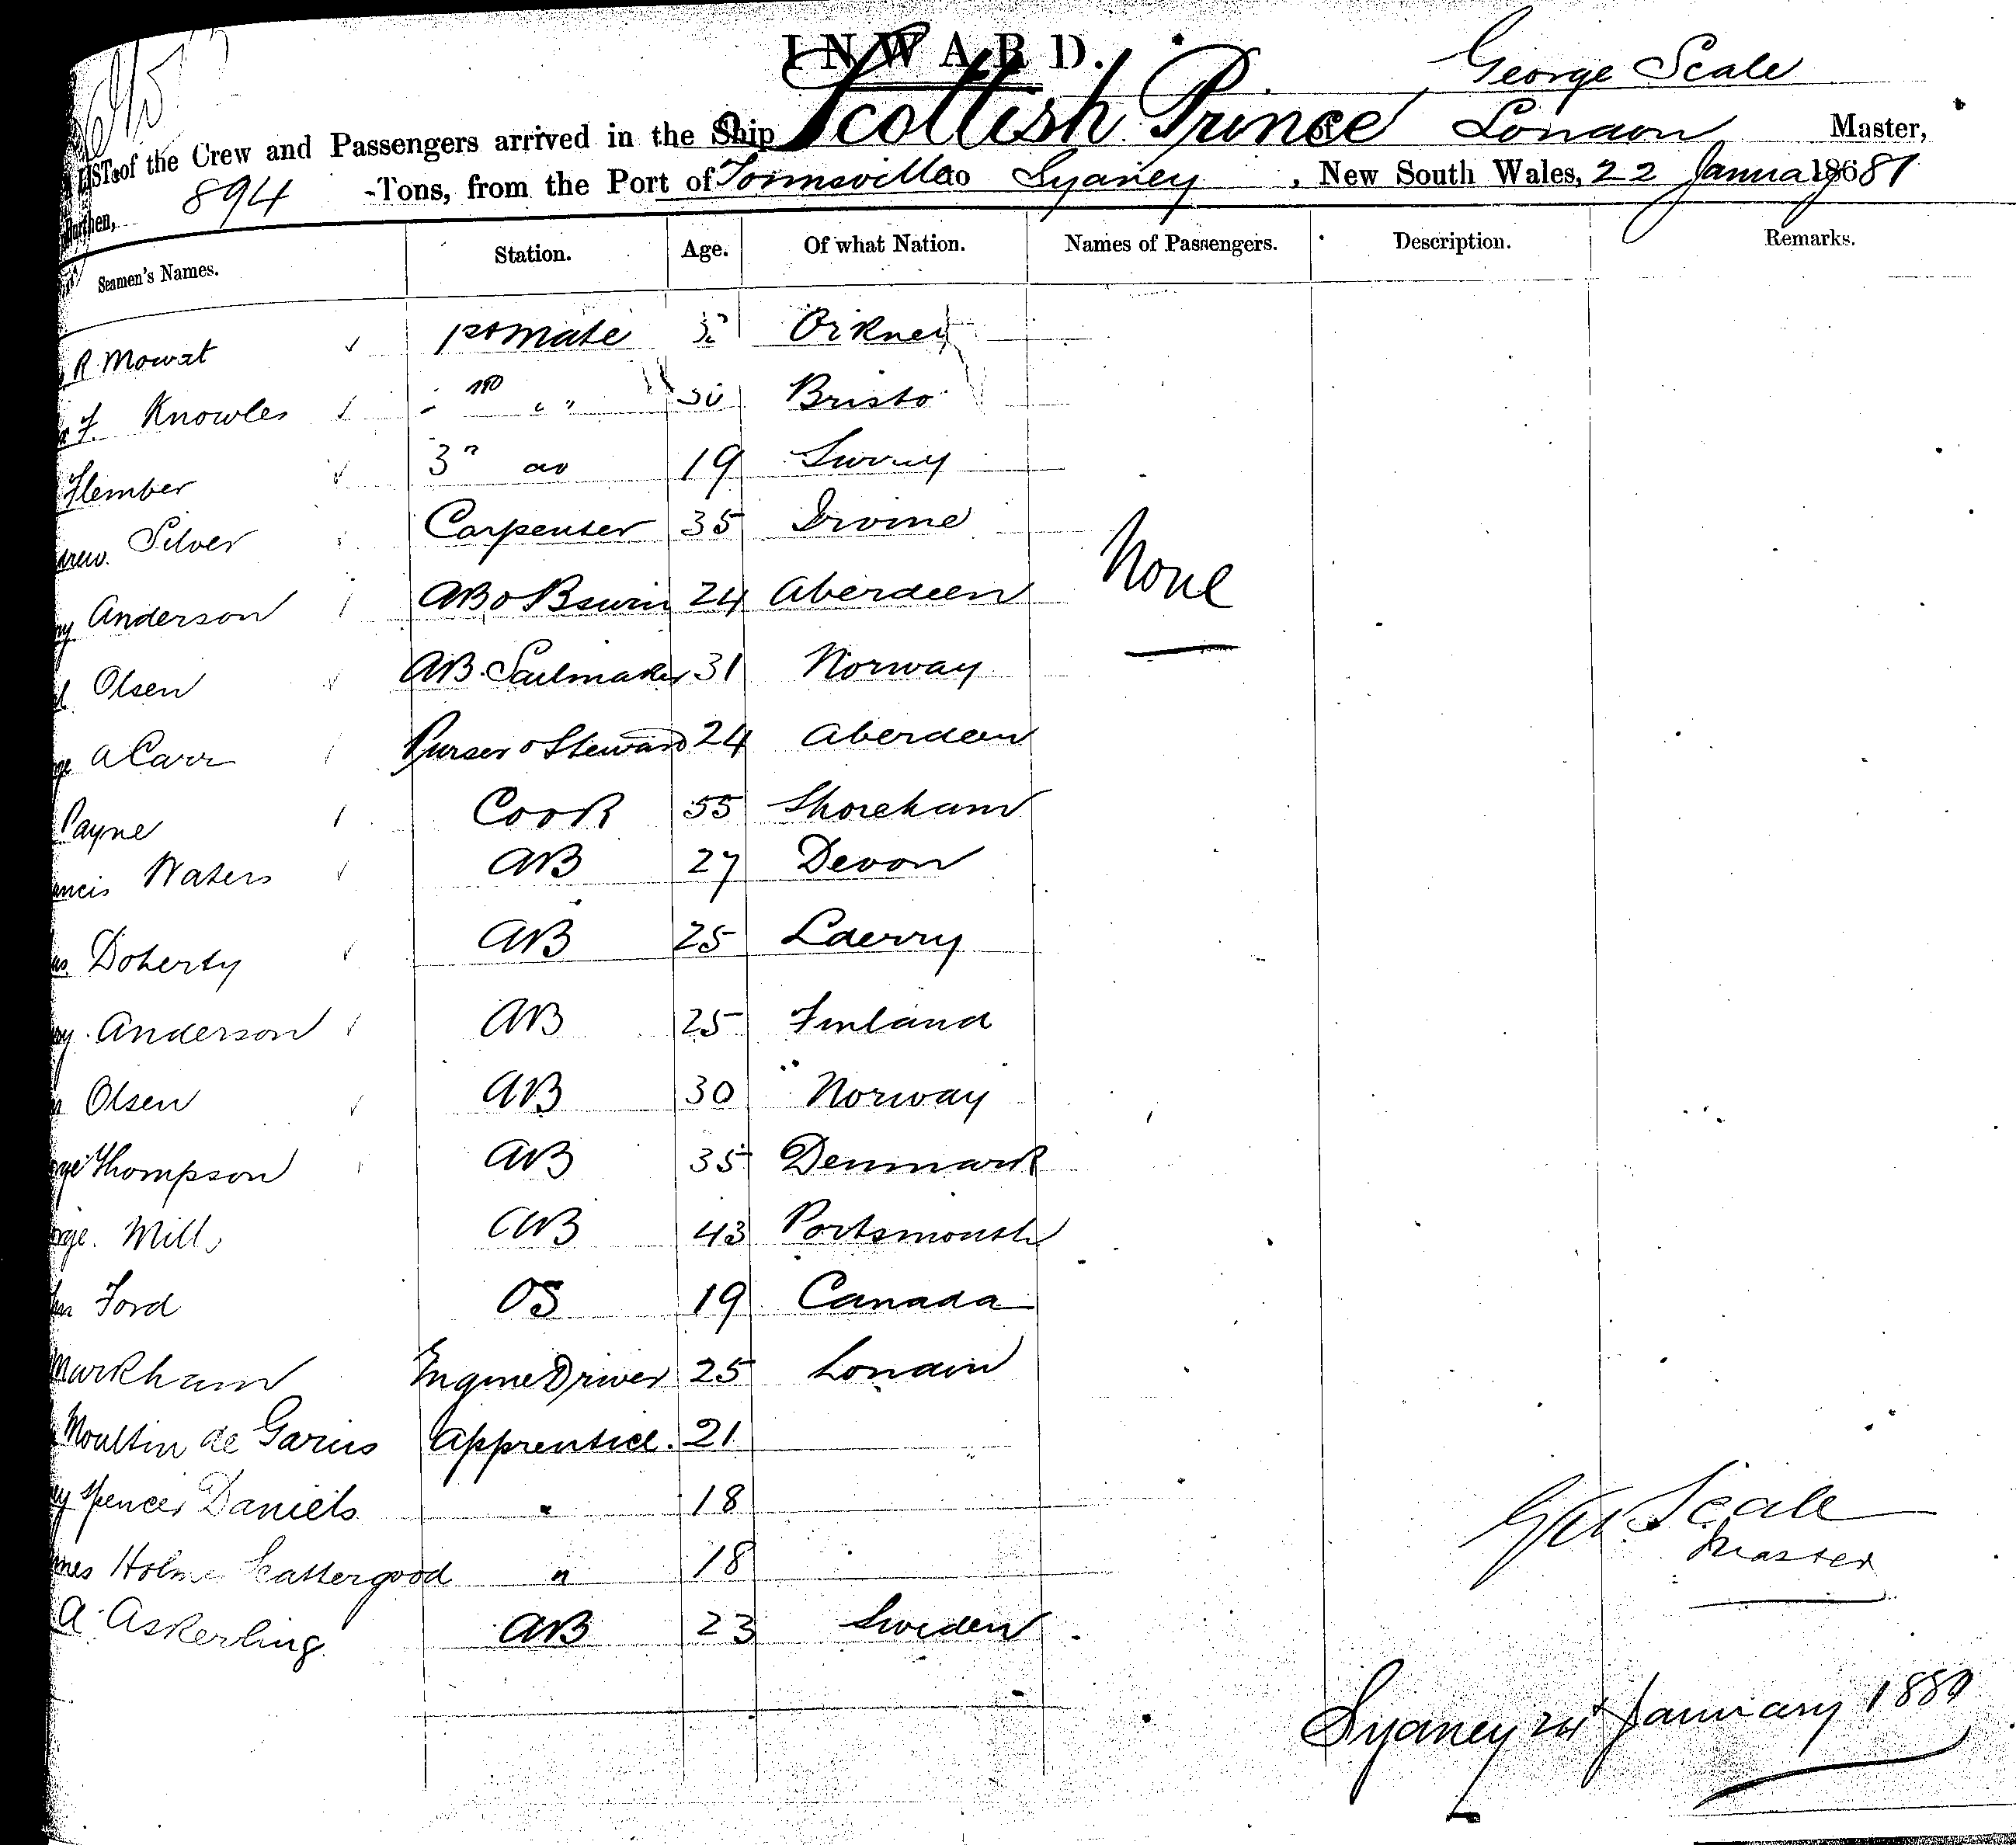 INWARD.
George Scale
LIST of the Crew and Passengers arrived in the Ship Scottish Prince of London Master,
Burthen, 894 -Tons, from the Port of Townsville to Sydney, New South Wales, 22 January 18681
Seamen's Names. Station. Age. Of what Nation. Names of Passengers. Description. Remarks.
R. Mowat 1st Mate Orkney
F. Knowles " " 30 Bristo
Flember 3rd do 19 Surrey
drew. Silver Carpenter 35 Irvine
None
ny Anderson AB & Bswin 24 Aberdeen
Olsen AB. Sailmaker 31 Norway
ge A Carr Purser & Steward 24 Aberdeen
Payne Cook 55 Shoreham
ancis Waters AB 27 Devon
Doherty AB 25 Lderry
ny. Anderson AB 25 Finland
Olsen AB 30 Norway
rge Thompson AB 35 Denmark
orge. Mills AB 43 Portsmouth
hn Ford OS 19 Canada
Markham Engine Driver 25 London
Moultin de Garis Apprentice. 21
y Spencer Daniels " 18
mes Holme Scattergood " 18
A. Askerling AB 23 Sweden
Geo. Scale
Master
Sydney 24th January 1881